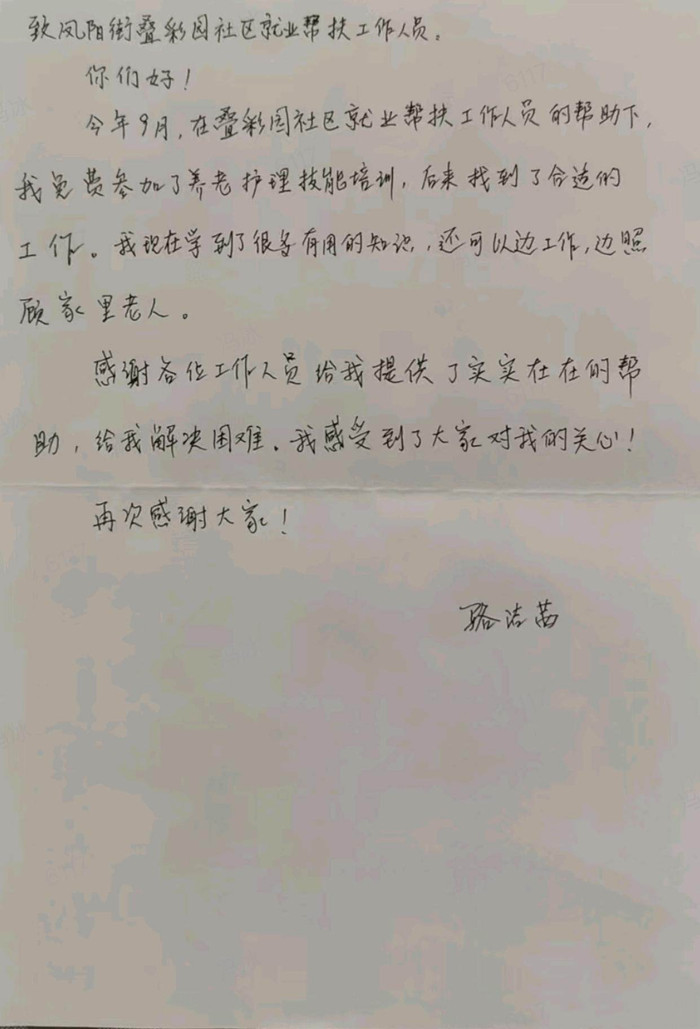 致凤阳街叠彩园社区就业帮扶工作人员：
你们好！
今年9月，在叠彩园社区就业帮扶工作人员的帮助下，
我免费参加了养老护理技能培训，后来找到了合适的
工作。我现在学到了很多有用的知识，还可以边工作，边照
顾家里老人。
感谢各位工作人员给我提供了实实在在的帮
助，给我解决困难。我感受到了大家对我的关心！
再次感谢大家！
骆洁茜